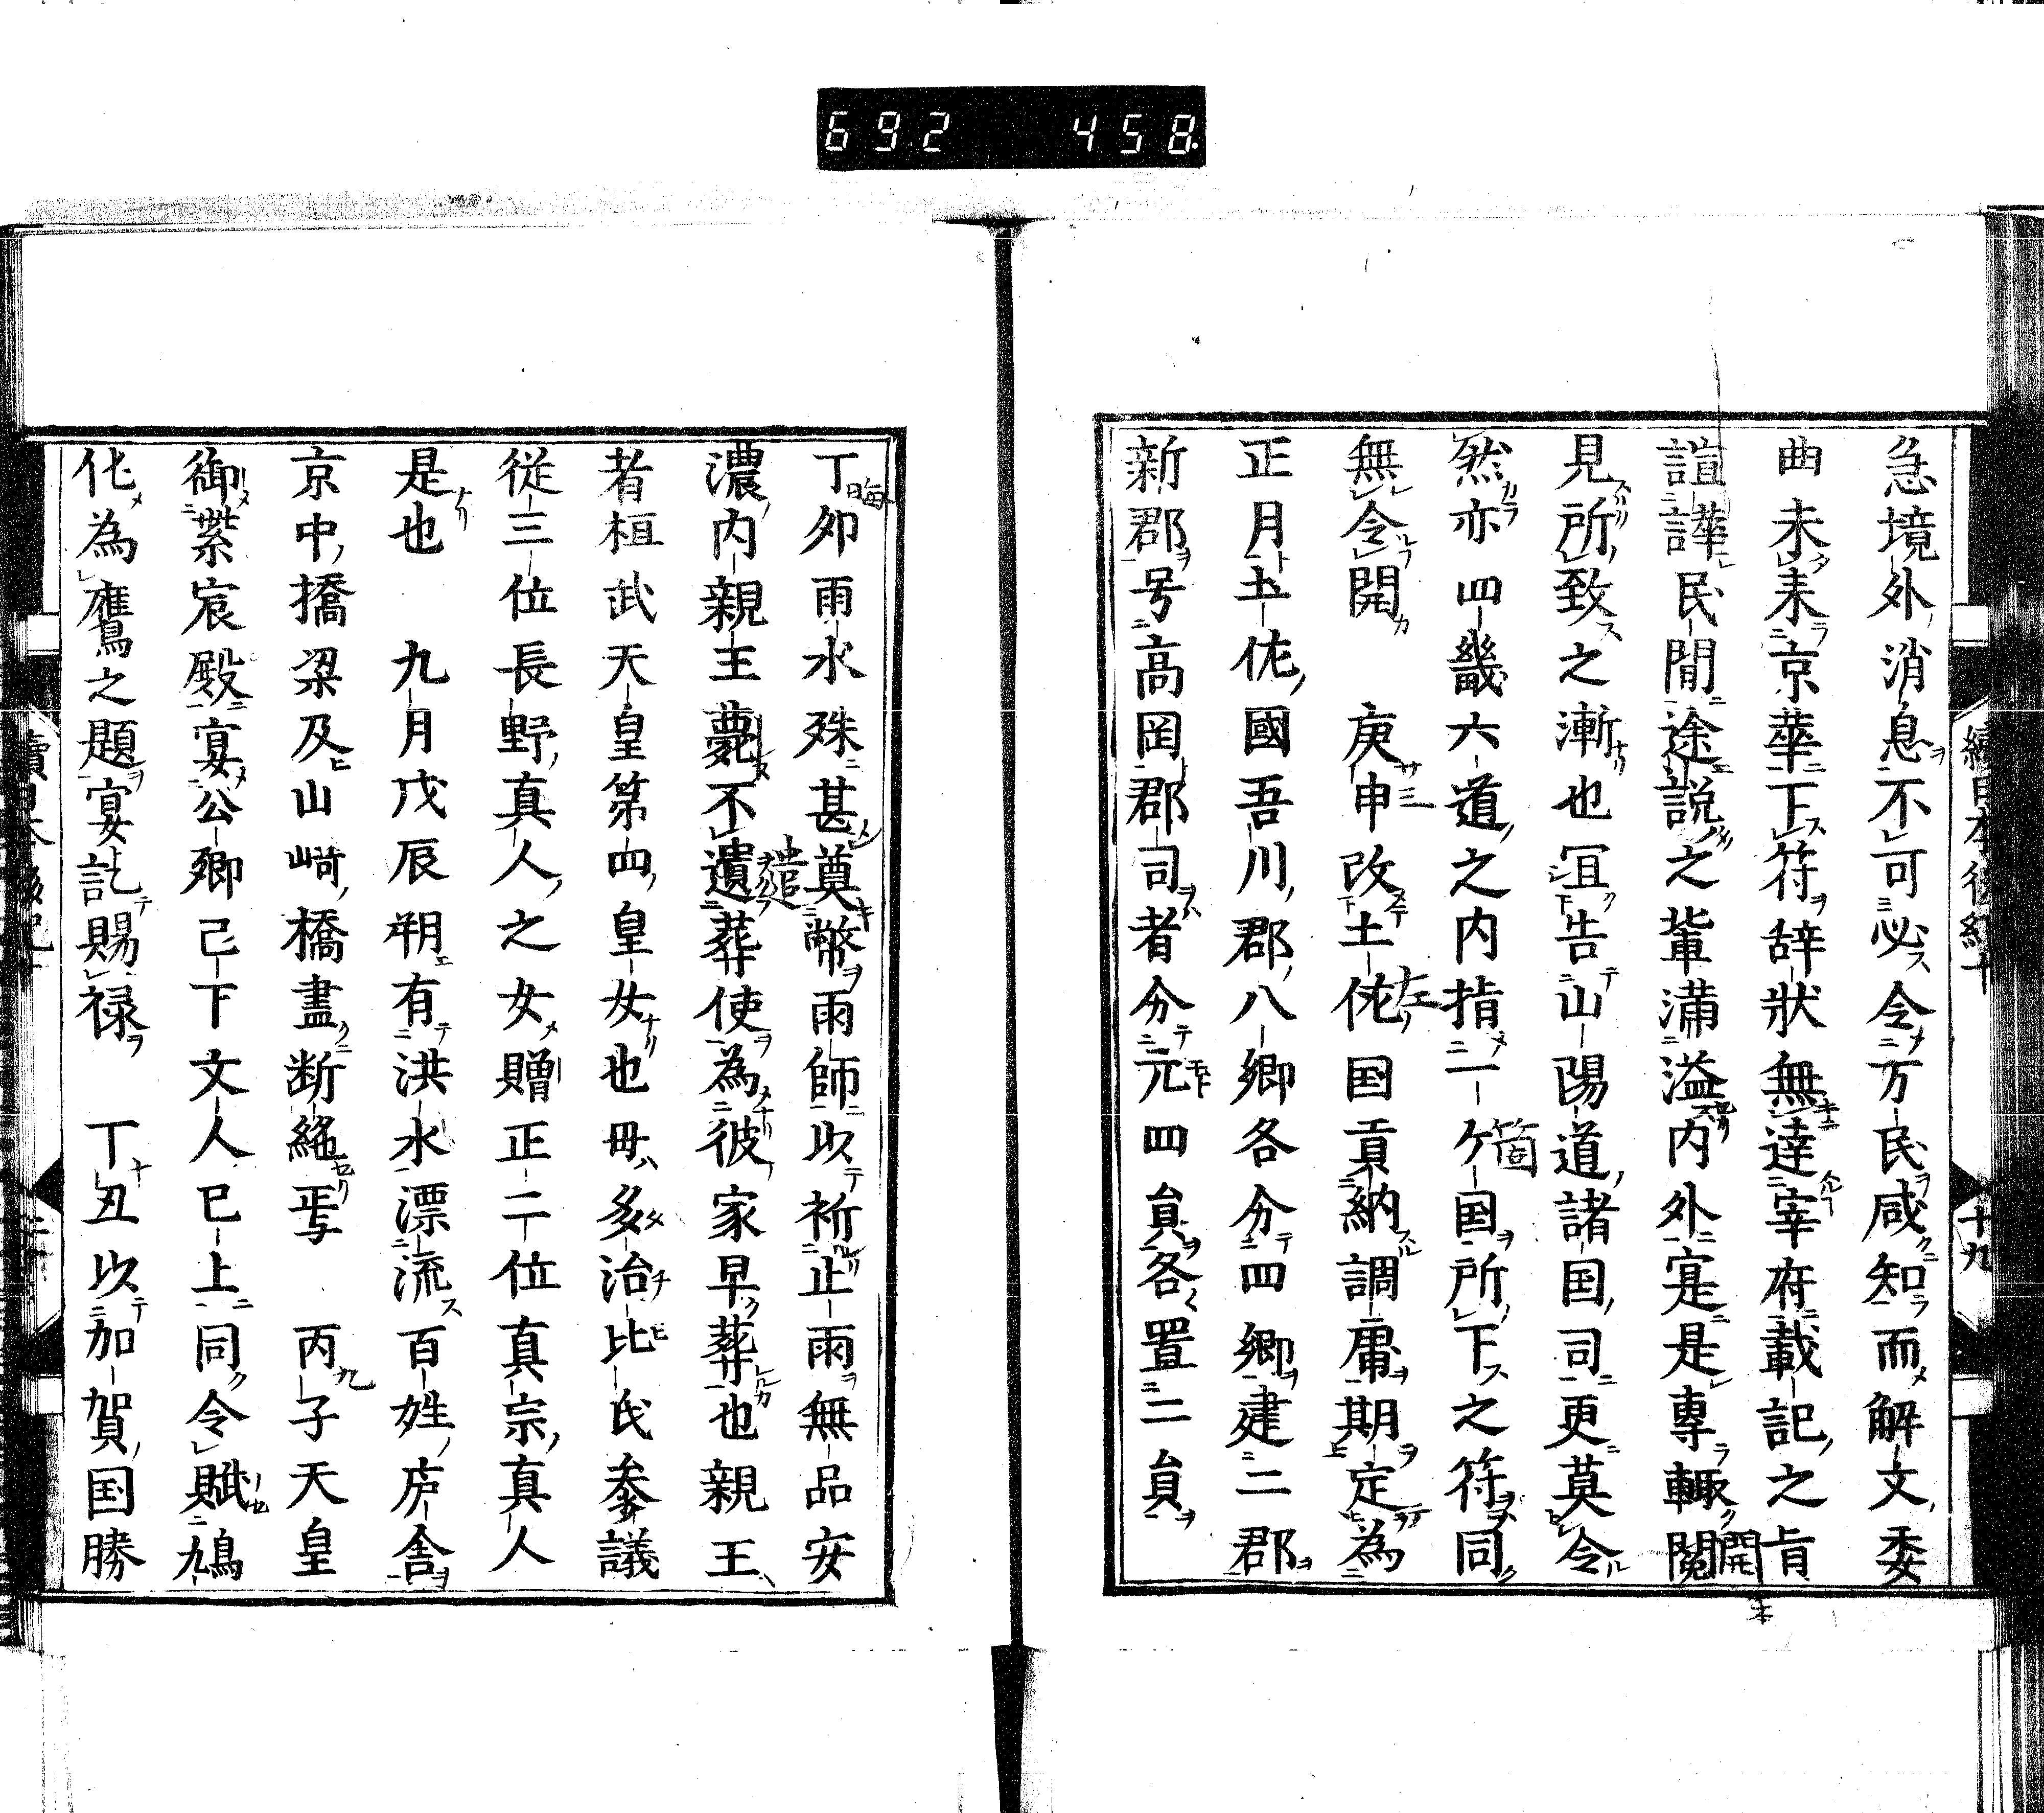 692 458
續日本後紀十
十九
急境外消息不可必令万民咸知而解文委
曲未来京華下符辞狀無達宰府載記之旨
諠譁民間途説之輩満溢内外寔是專輙閲
開
見所致之漸也冝告山陽道諸国司更莫令
然亦四畿六道之内指一ケ国所下之符同
箇
無令開 庚申改土佐国貢納調庸期定為
正月土佐國吾川郡八郷各分四郷建二郡
新郡号高岡郡司者分元四貟各置二貟
丁卯雨水殊甚奠幣雨師以祈止雨無品安
晦
濃内親王薨不遺葬使為彼家早葬也親王
遣
者桓武天皇第四皇女也母多治比氏参議
從三位長野真人之女贈正二位真宗真人
是也 九月戊辰朔有洪水漂流百姓庐舎
京中橋梁及山﨑橋盡断絶焉 丙子天皇
御紫宸殿宴公卿已下文人已上同令賦鳩
化為鷹之題宴訖賜禄 丁丑以加賀国勝